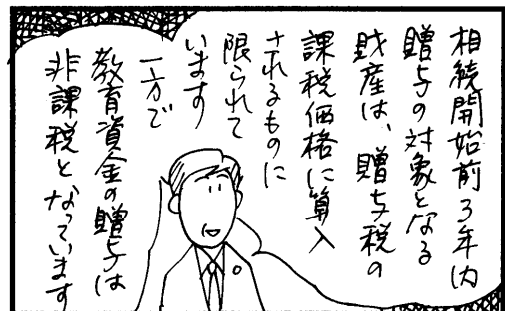 相続開始前3年内
贈与の対象となる
財産は、贈与税の
課税価格に算入
されるものに
限られて
います
一方で
教育資金の贈与は
非課税となっています